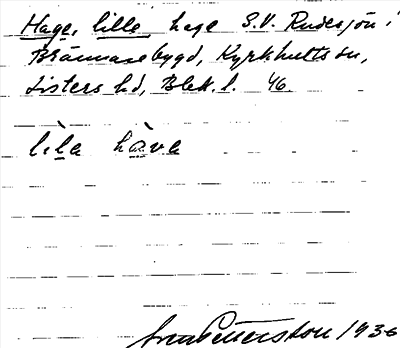 Hage, lille hage S.V. Rudesjön i
Brännarebygd, Kyrkhults sn,
Listers hd, Blek. l. 46
lila hàva
Pettersson 1936